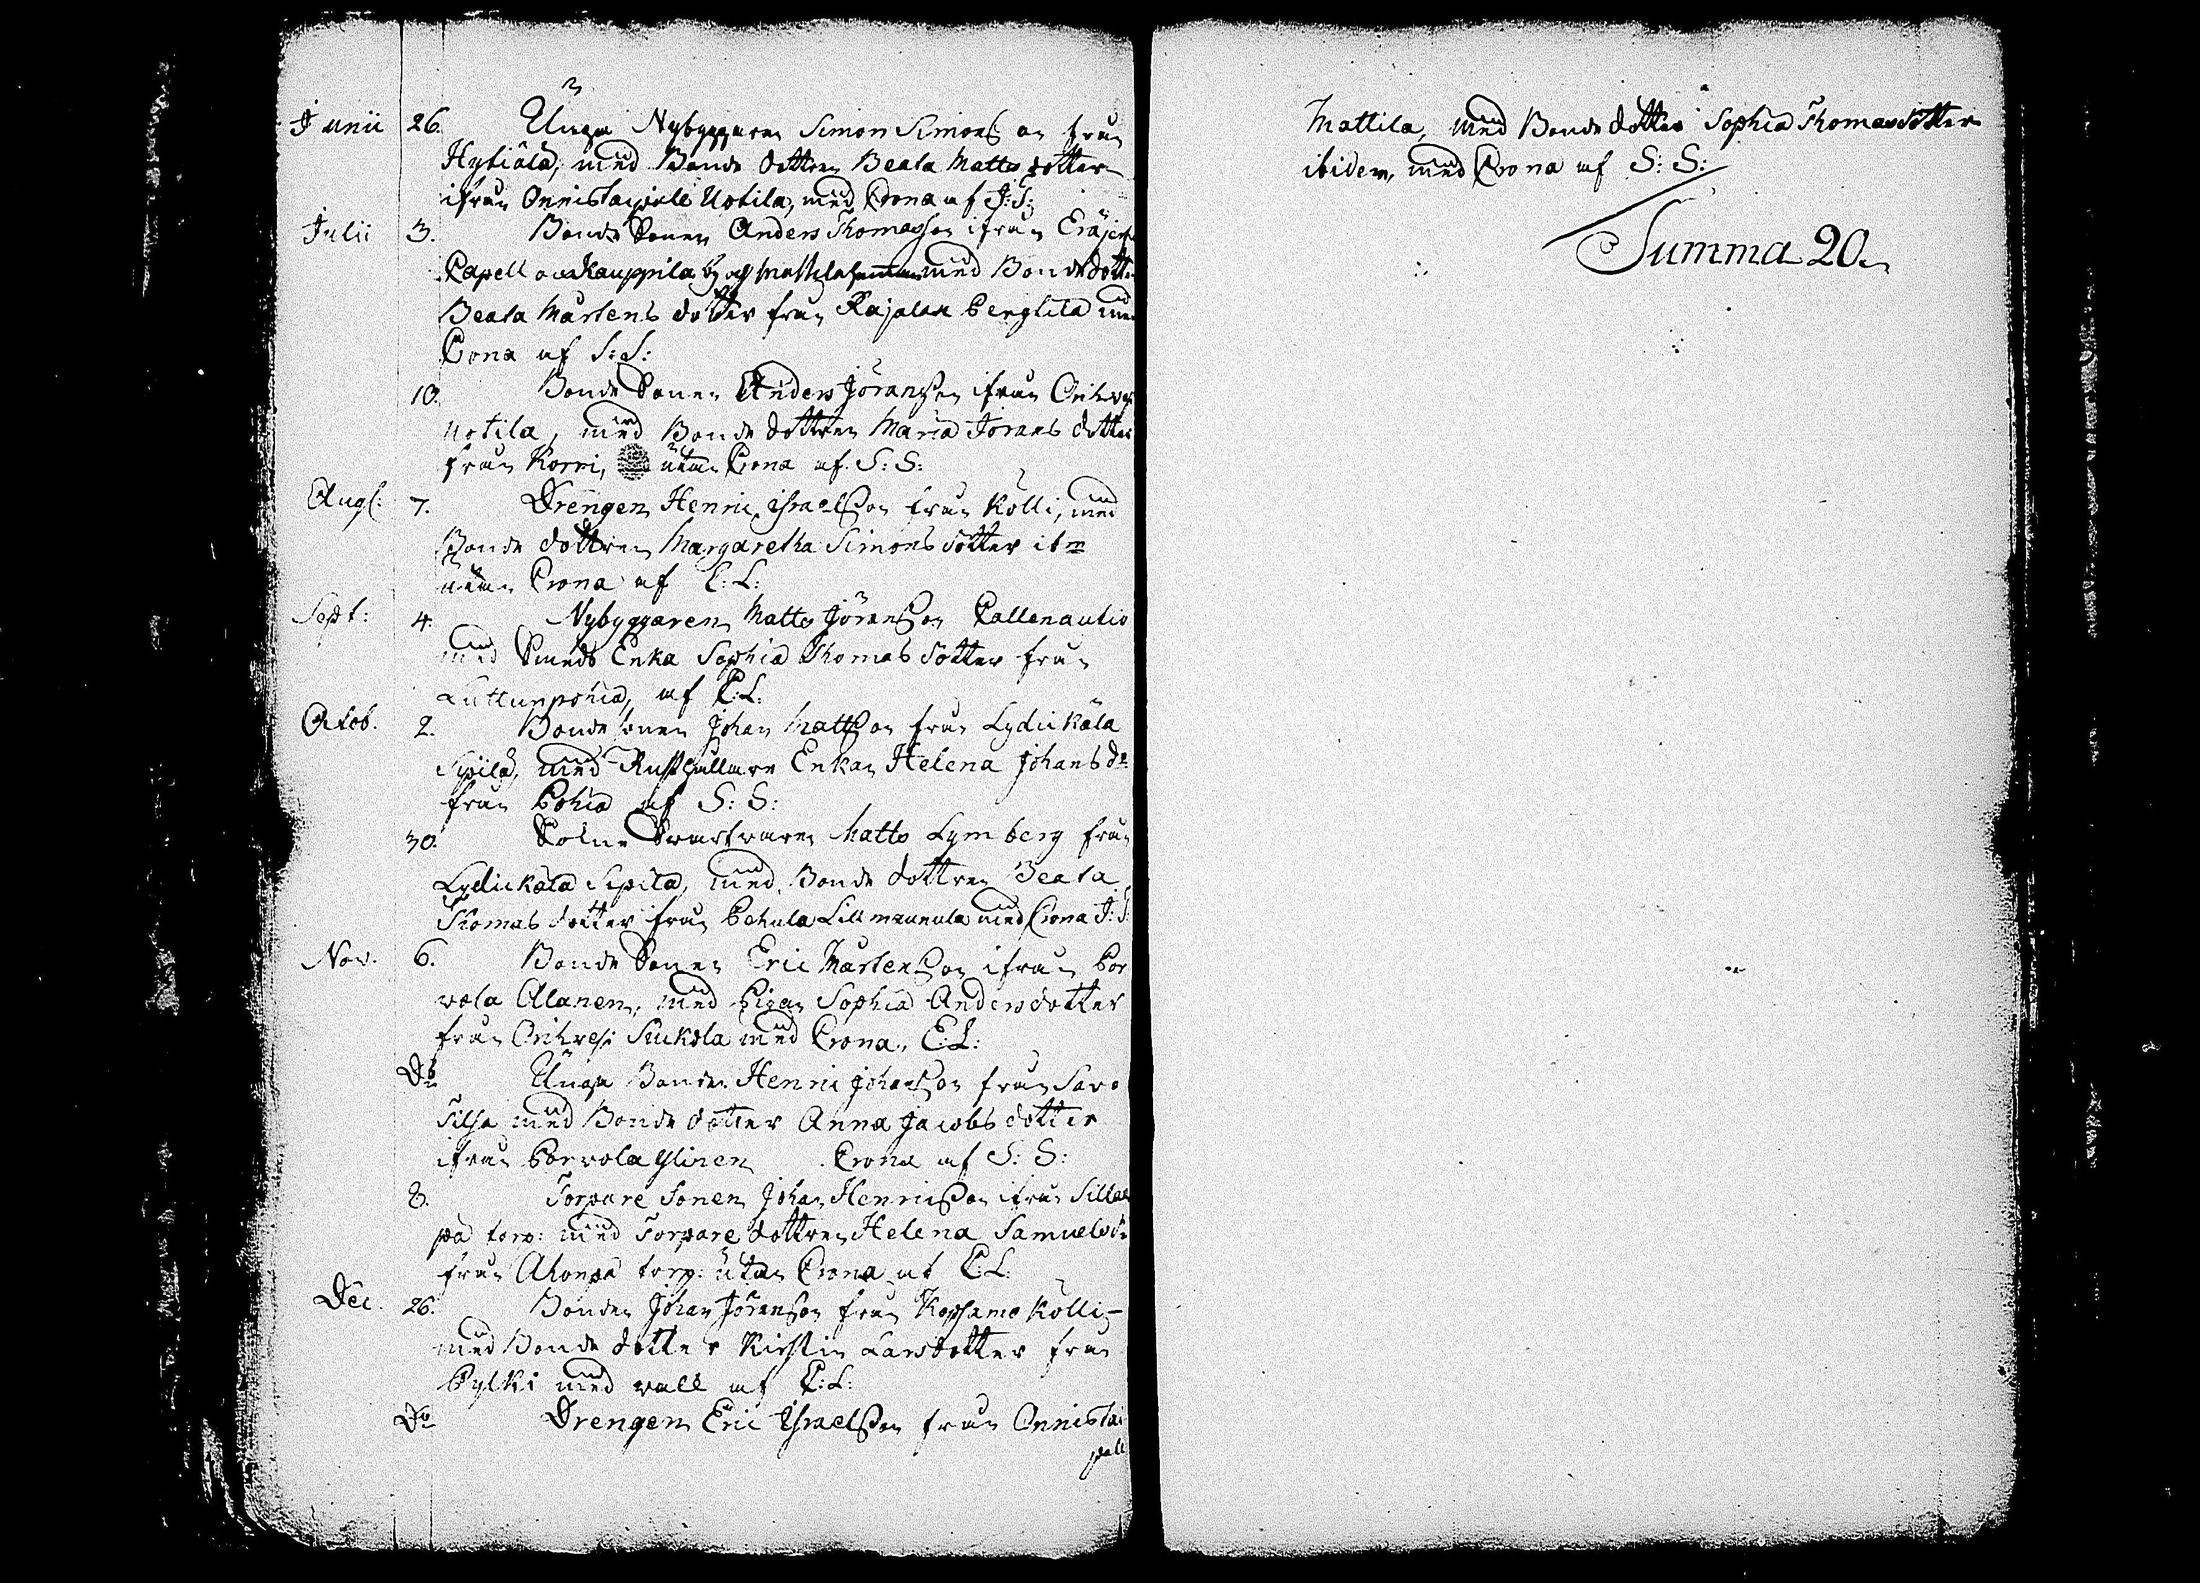 Junii 26. Unga Nybyggaren Simon Simonsson från
Hytiälä, med Bonde dottren Beata Matts dotter
ifrån Onnistaipale Uotila, med Crona af J: S:
Julii 3. Bonde Sonen Anders Thomasson ifrån Eräjerf
Capell och Kauppila by och Mattila hemman med Bonde dotter
Beata Mårtens dotter från Rajalax Penglila med
Crona af S: S:
10. Bonde Sonen Anders Jöransson ifrån Orihvesi
Uotila, med Bonde dottren Maria Jörans dotter
från Korri, utan Crona af S: S:
Augs: 7. Drengen Henric Israelsson från Kolli, med
Bonde dottren Margaretha Simons dotter ibm
utan Crona af C: L:
Sept: 4. Nybyggaren Matts Jöransson Callenautio
med Smeds Enka Sophia Thomas dotter från
Luttunpohia, af C: L:
Octob. 2. Bonde sonen Johan Mattsson från Lydickälä
Sipilä, med Rusthållare Enkan Helena Johans dr
från Pohia af S: S:
30. Sockne Svarfvaren Matts Lymberg från
Lydickälä Sipilä, med Bonde dottren Beata
Thomas dotter från Pehula Lill maunula med Crona J: S:
Nov. 6. Bonde Sonen Eric Mårtensson ifrån Por
vola Alanen, med Pigan Sophia Anders dotter
från Orihvesi Suckola med Crona, C: L:
Do Unga Bonden Henric Johansson från Savo
Tilsa med Bonde dotter Anna Jacobs dotter
ifrån Porvola Ylinen Crona af S: S:
8. Torpare Sonen Johan Henricsson ifrån Sillan
pä torp: med Torpare dottren Helena Samuels dr
från Ahonpä torp: utan Crona af C: L:
Dec. 26. Bonden Johan Jöransson från Kopsamo Kolli
med Bonde dotter Kirstin Lars dotter från
Pylki med vall af C: L:
Do Drengen Eric Israelsson från Onnistai
pall
Mattila, med Bonde dotter Sophia Thomas dotter
ibidem, med Crona af S: S:
Summa 20.